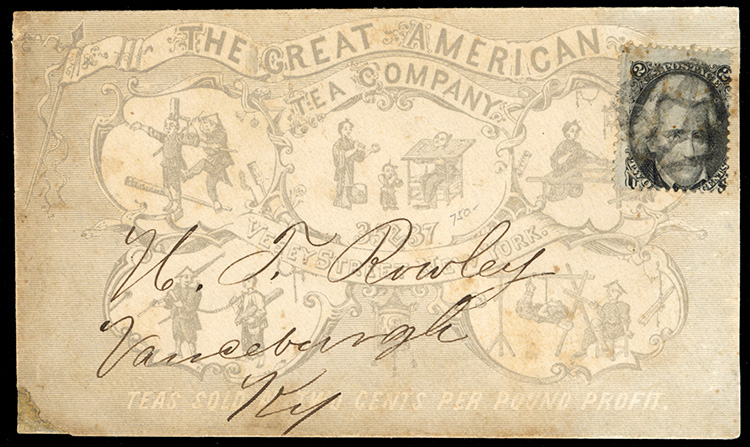 THE GREAT AMERICAN
TEA COMPANY
2 POSTAGE 2
TWO CENTS
750-
VESEY STREET YORK.
H. T. Rowley
Vanceburgh
Ky
TEAS SOLD CENTS PER POUND PROFIT.